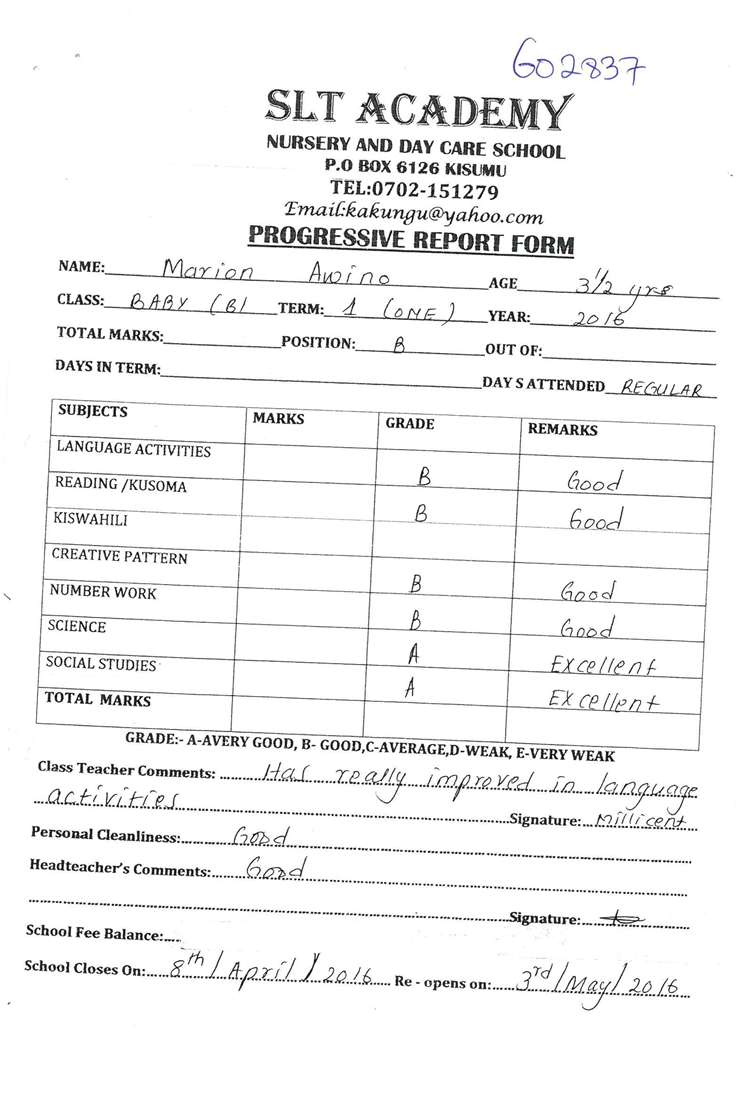 G02837
SLT ACADEMY
NURSERY AND DAY CARE SCHOOL
P.O BOX 6126 KISUMU
TEL:0702-151279
Email:kakungu@yahoo.com
PROGRESSIVE REPORT FORM
NAME: Marion Awino AGE 3½ yrs
CLASS: BABY (B) TERM: 1 (ONE) YEAR: 2016
TOTAL MARKS: POSITION: B OUT OF:
DAYS IN TERM: DAY S ATTENDED REGULAR
SUBJECTS MARKS GRADE REMARKS
LANGUAGE ACTIVITIES B Good
READING /KUSOMA B Good
KISWAHILI
CREATIVE PATTERN B Good
NUMBER WORK B Good
SCIENCE A Excellent
SOCIAL STUDIES A Excellent
TOTAL MARKS
GRADE:- A-AVERY GOOD, B- GOOD,C-AVERAGE,D-WEAK, E-VERY WEAK
Class Teacher Comments: Has really improved in language
activities Signature: Millicent
Personal Cleanliness: Good
Headteacher's Comments: Good
Signature:
School Fee Balance:
School Closes On: 8th/April/2016 Re - opens on: 3rd/May/2016